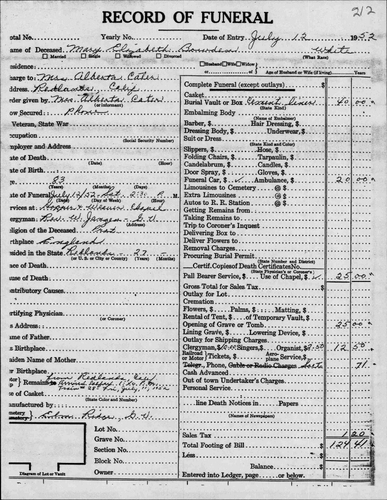 212
RECORD OF FUNERAL
otal No. Yearly No. Date of Entry July 12 1952
ame of Deceased Mary Elizabeth Bowden White
Married Single Widowed Divorced (What Race)
esidence Husband Wife Widow of
harge to Mrs Alberta Cater Age of Husband or Wife (if living) Years
ddress Redlands, Calif
rder given by Mrs Alberta Cater
ow Secured Phone
Veteran, State War
ccupation (Social Security Number)
mployer and Address
ate of Death
ate of Birth
ge 83 (Years) (Months) (Days)
ate of Funeral July 12/52 Sat. 2:30 P. M.
ervices at Chapel
lergyman Rev. W.
eligion of the Deceased Prot
irthplace England
esided in the State Redlands 27
(or U. S. or City or County) (Months)
ace of Death
ause of Death
ontributory Causes
ertifying Physician (or Coroner)
s Address
ame of Father
s Birthplace
aiden Name of Mother
er Birthplace
Remains to from Redlands, Calif
Train # 28 July 11, 1952
ze of Casket
(State Color and Number)
anufactured by
Lot No.
Grave No.
Section No.
Block No.
Owner
Diagram of Lot or Vault
Complete Funeral (except outlays) $
Casket
Burial Vault or Box Cement liner 40 00
(State Kind)
Embalming Body
(Name of Embalmer)
Barber, $ Hair Dressing, $
Dressing Body, $ Underwear, $
Suit or Dress
(State Kind and Color)
Slippers, $ Hose, $
Folding Chairs, $ Tarpaulin, $
Candelabrum, $ Candles, $
Door Spray, $ Gloves, $
Funeral Car, $ Ambulance, $ 20 00
Limousines to Cemetery @ $
Extra Limousines @ $
Autos to R. R. Station @ $
Getting Remains from
Taking Remains to
Trip to Coroner's Inquest
Delivering Box to
Deliver Flowers to
Removal Charges
Procuring Burial Permit
(State Number and District)
Certif. Copies of Death Certificates No.
(State Physician's or Coroner's)
Pall Bearer Service, $ Use of Chapel, $ 25.00
Gross Total for Sales Tax $
Outlay for Lot
Cremation
Flowers, $ Palms, $ Matting, $
Rental of Tent, $ of Temporary Vault, $
Opening of Grave or Tomb 25 00
Lining Grave, $ Lowering Device, $
Outlay for Shipping Charges
Clergyman, $10.00 Singers, $ Organist, $2.50 12 50
Railroad or Motor Tickets, $ Aeroplane Service, $
Telegr., Phone, Cable or Radio Charges 71
Cash Advanced
Out of town Undertaker's Charges
Personal Service
line Death Notices in Papers
(Names of Newspapers)
Sales Tax 1 20
Total Footing of Bill $ 124 41
Less
Balance
Entered into Ledger, page or below